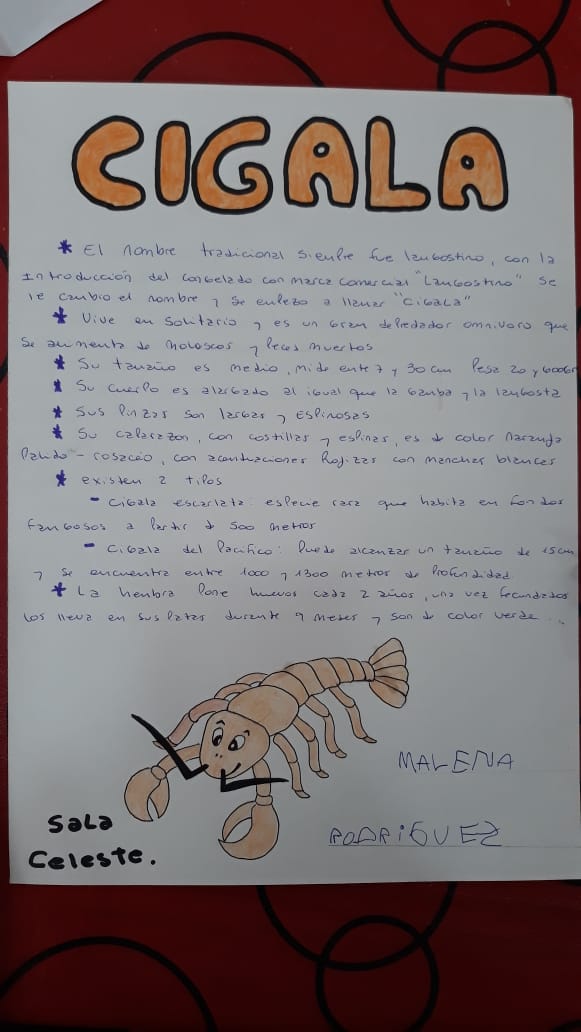 CIGALA
* El nombre tradicional siempre fue langostino, con la
introducción del congelado con marca comercial "Langostino" se
le cambio el nombre y se empezo a llamar "Cigala"
* Vive en solitario y es un gran depredador omnivoro que
se aumenta de moloscos y peces muertos
* Su tamaño es medio, mide ente 7 y 30 cm Pesa 20 y 600gr
* Su cuerpo es alargado al igual que la gamba y la langosta
* Sus pinzas son largas y espinosas
* Su caparazon, con costillas y espinas, es de color naranja
palido - rosaceo, con acentuaciones Rojizas con manchas blancas
* existen 2 tipos
- Cigala escarlata: especie rara que habita en fondos
fangosos a partir de 500 metros
- Cigala del Pacifico: Puede alcanzar un tamaño de 15cm
y se encuentra entre 1000 y 1300 metros de profundidad.
* La hembra pone huevos cada 2 años, una vez fecundados
los lleva en sus patas durante 9 meses y son de color verde...
MALENA
RODRiGUEZ
Sala
Celeste.